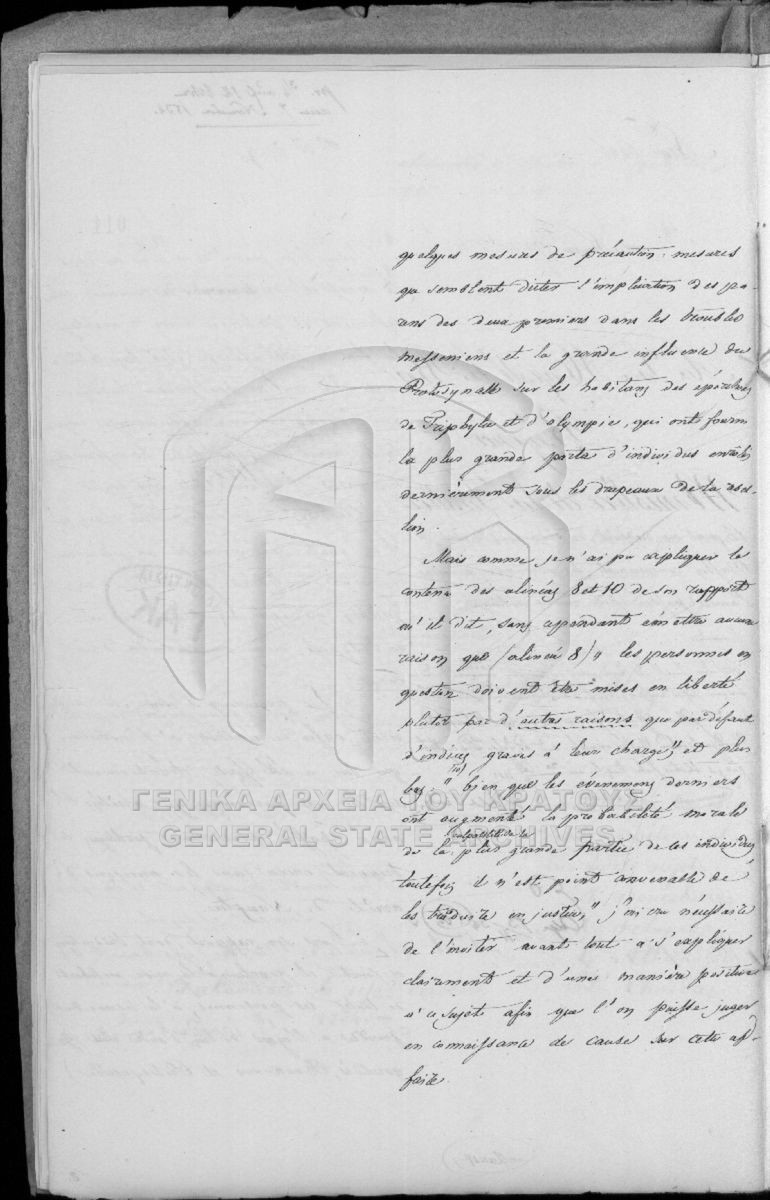 quelques mesures de précaution. mesures
que semblent dicter l'implication des pa-
rens des deux premiers dans les troubles
messeniens et la grande influence du
Protosynalle sur les habitans des éparchies
de Triphylie et d'olympie, qui ont fourni
la plus grande partie d'individus enrôlés
dernièrement sous les drapeaux de la rebel-
lion.
Mais comme je n'ai pu expliquer le
contenu des alinéas 8 et 10 de son rapport
où il dit, sans cependant émettre aucune
raison que (alinéa 8) " les personnes en
question doivent être mises en liberté
plutot par d'autres raisons que par défaut
d'indices graves à leur charge" et plus
bas (10) " bien que les évenemens derniers
ont augmenté la probabilité morale
de la culpabilité de la plus grande partie de ces individus,
toutefois il n'est point convenable de
les traduire en justice," j'ai cru nécessaire
de l'inviter avant tout à s'expliquer
clairement et d'une manière positive
à ce sujet afin que l'on puisse juger
en connaissance de cause sur cette af-
faire.
ΓΕΝΙΚΑ ΑΡΧΕΙΑ ΤΟΥ ΚΡΑΤΟΥΣ
GENERAL STATE ARCHIVES